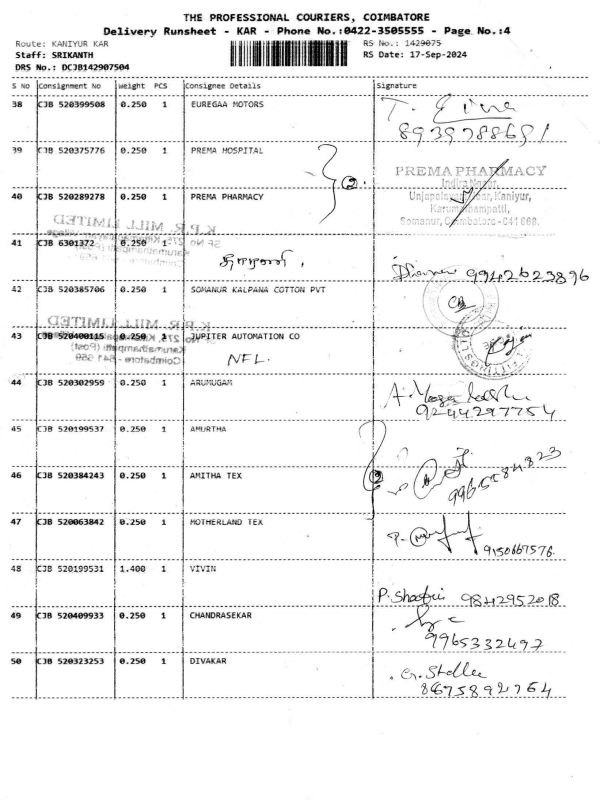 THE PROFESSIONAL COURIERS, COIMBATORE
Delivery Runsheet - KAR - Phone No.:0422-3505555 - Page No.:4
Route: KANIYUR KAR
RS No.: 1429075
Staff: SRIKANTH
RS Date: 17-Sep-2024
DRS No.: DCJB142907504
S No Consignment No Weight PCS Consignee Details Signature
38 CJB 520399508 0.250 1 EUREGAA MOTORS
39 CJB 520375776 0.250 1 PREMA HOSPITAL
2
PREMA PHARMACY
Indira Nagar,
Kaniyur,
Karumathampatti,
Somanur, Coimbatore - 641 668.
40 CJB 520289278 0.250 1 PREMA PHARMACY
K.P.R. MILL LIMITED
41 CJB 6301372 0.250 1
9942623896
42 CJB 520385706 0.250 1 SOMANUR KALPANA COTTON PVT
K.P.R. MILL LIMITED
43 CJB 520400115 0.250 1 JUPITER AUTOMATION CO
Karumathampatti (Post)
Coimbatore - 641 659
NFL.
44 CJB 520302959 0.250 1 ARUMUGAM
9244297754
45 CJB 520199537 0.250 1 AMURTHA
2
9965584823
46 CJB 520384243 0.250 1 AMITHA TEX
47 CJB 520063842 0.250 1 MOTHERLAND TEX
9150667576.
48 CJB 520199531 1.400 1 VIVIN
9842952018
49 CJB 520409933 0.250 1 CHANDRASEKAR
9965332497
50 CJB 520323253 0.250 1 DIVAKAR